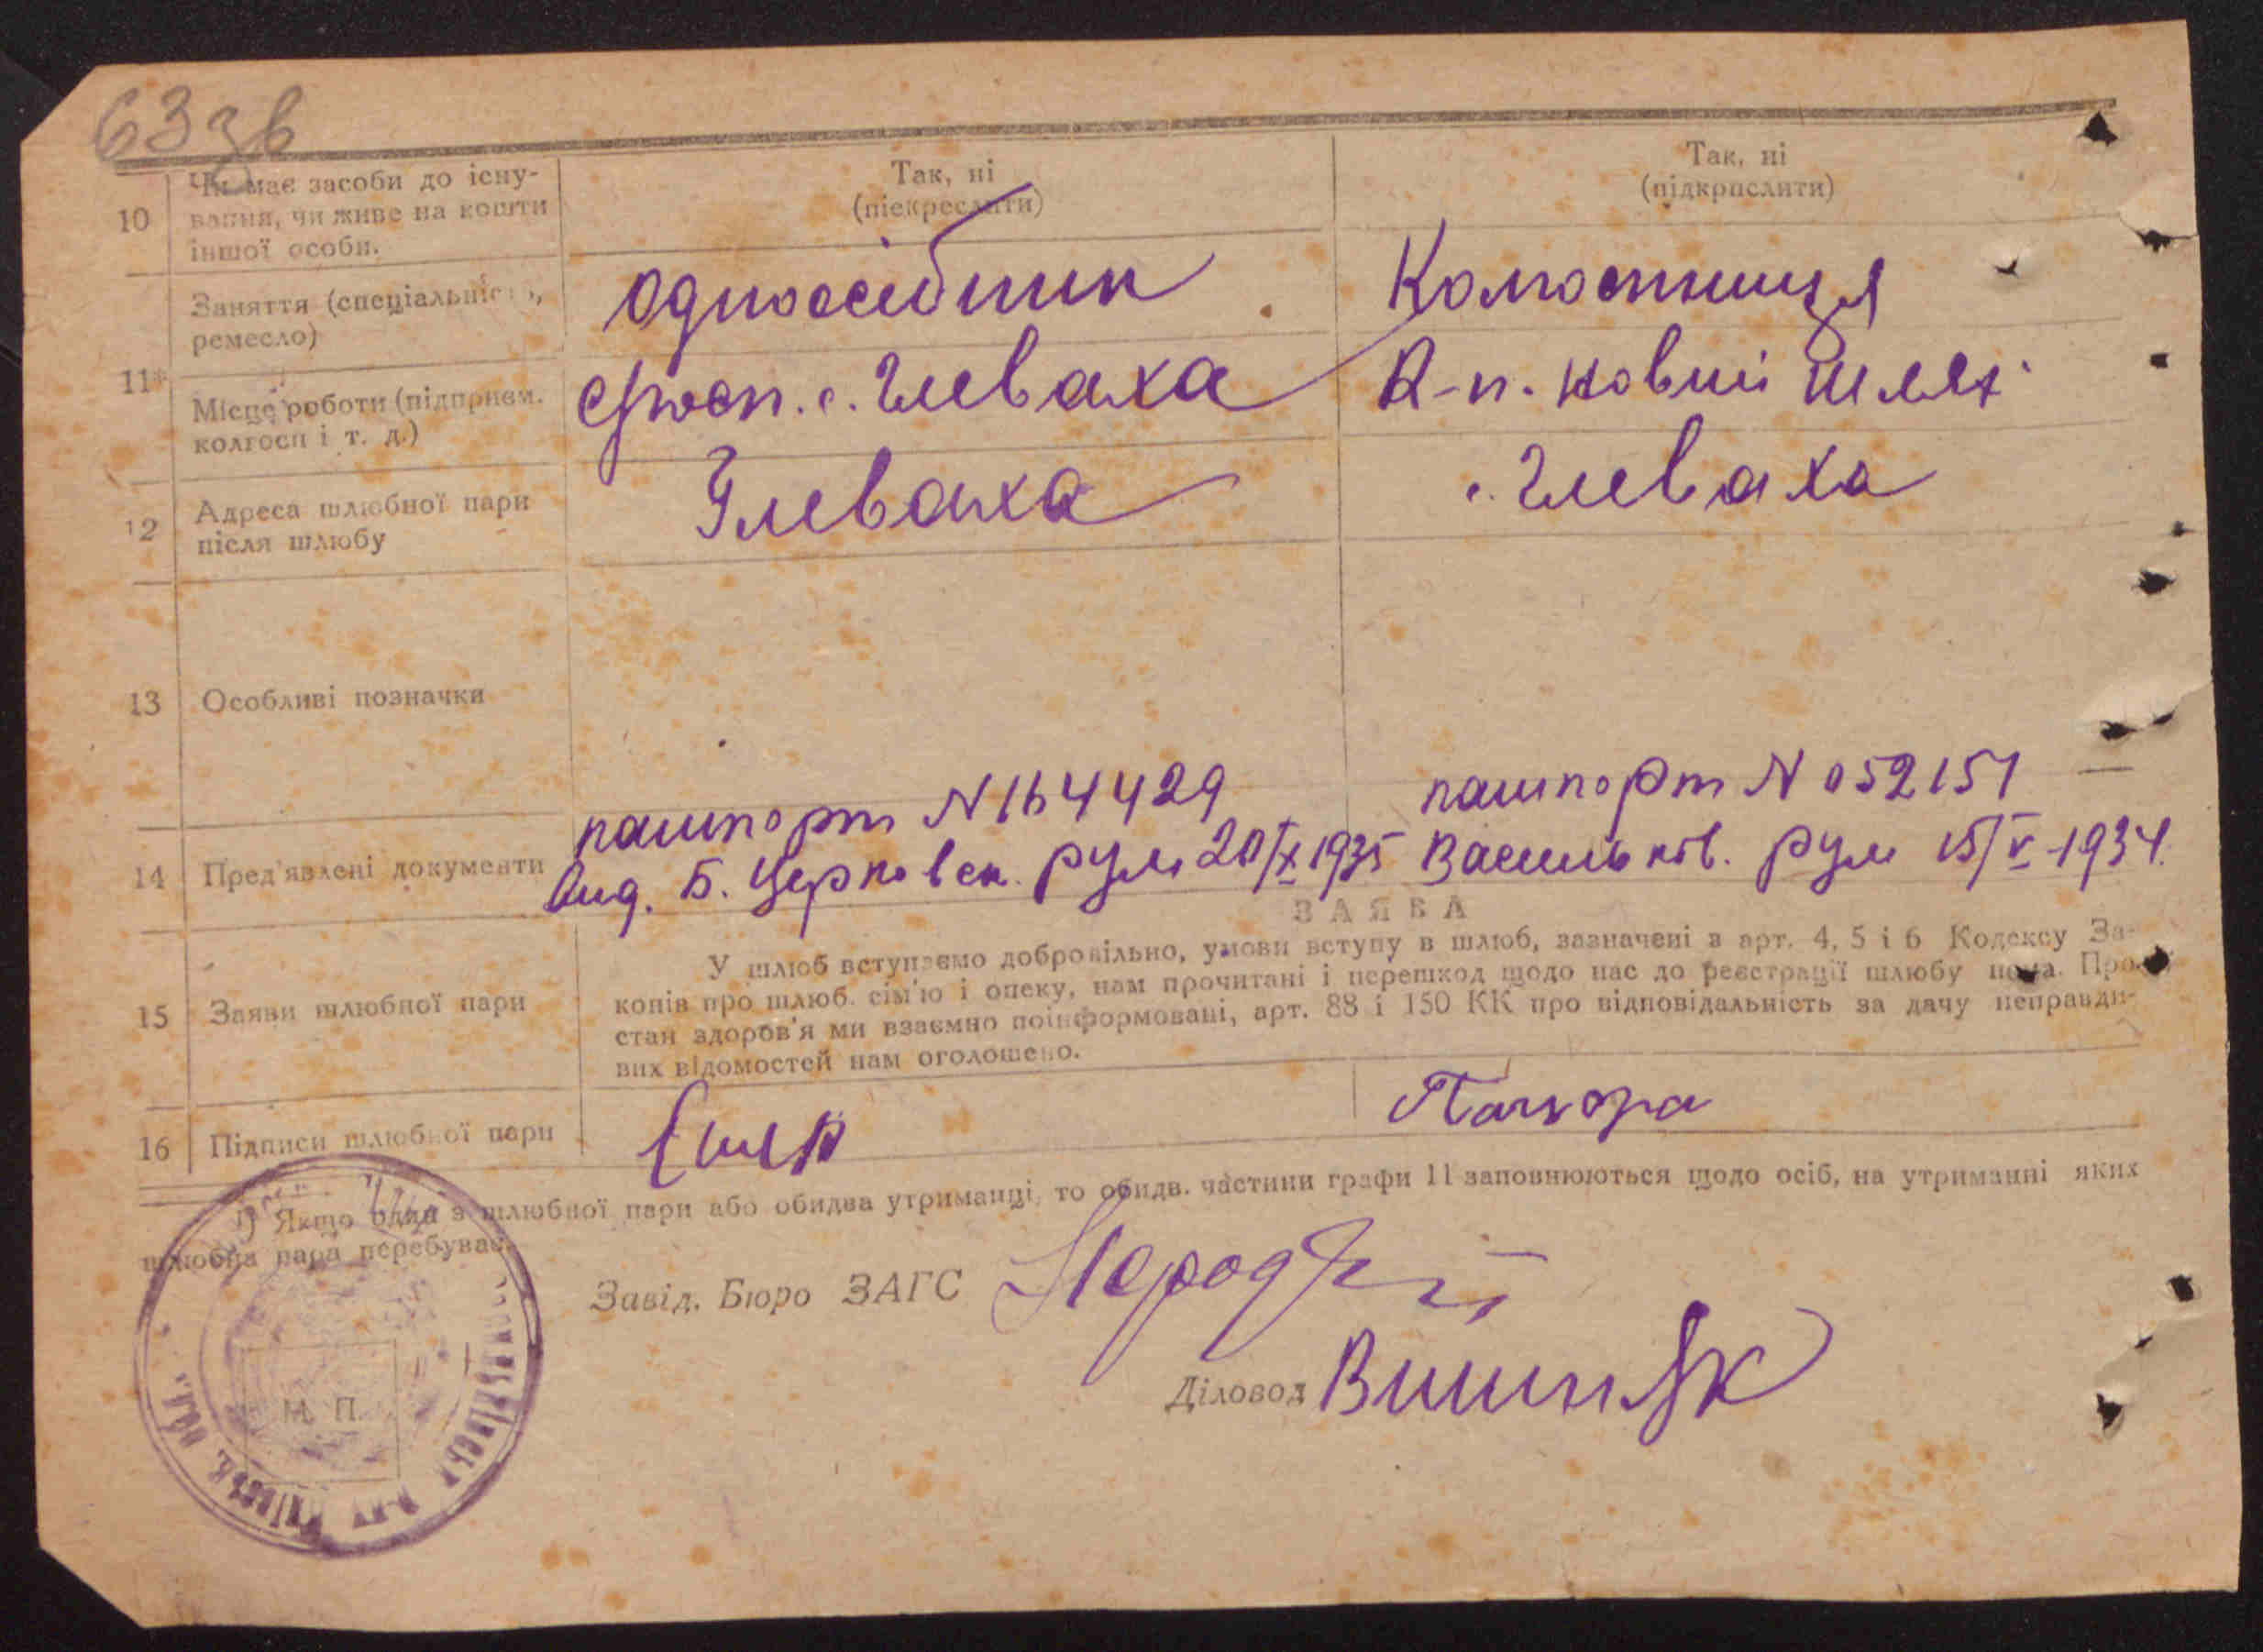 63 зв
10
Чи має засоби до існу-
вання, чи живе на кошти
іншої особи.
Так, ні
(підкреслити)
Так, ні
(підкрпслити)
11*
Заняття (спеціальність,
ремесло)
одноосібник
Колгоспниця
Місце роботи (підприєм.
колгосп і т. д.)
с. Глеваха
К-п. Новий шлях
12
Адреса шлюбної пари
після шлюбу
Глеваха
с. Глеваха
13
Особливі позначки
14
Пред'явлені документи
пашпорт N 164429
Вид. Б. Церковск. РУМ 20/X 1935
пашпорт N 052151
Васильків. РУМ 15/V-1934
15
Заяви шлюбної пари
ЗАЯВА
У шлюб вступаємо добровільно, умови вступу в шлюб, зазначені в арт. 4, 5 і 6 Кодексу За-
конів про шлюб. сім'ю і опеку, нам прочитані і перешкод щодо нас до реєстрації шлюбу нема. Про
стан здоров'я ми взаємно поінформовані, арт. 88 і 150 КК про відповідальність за дачу неправди-
вих відомостей нам оголошено.
16
Підписи шлюбної пари
1) Якщо один з шлюбної пари або обидва утриманці, то обидв. частини графи 11 заповнюються щодо осіб, на утриманні яких
шлюбна пара перебуває.
Завід. Бюро ЗАГС
Діловод Вишняк
М. П.